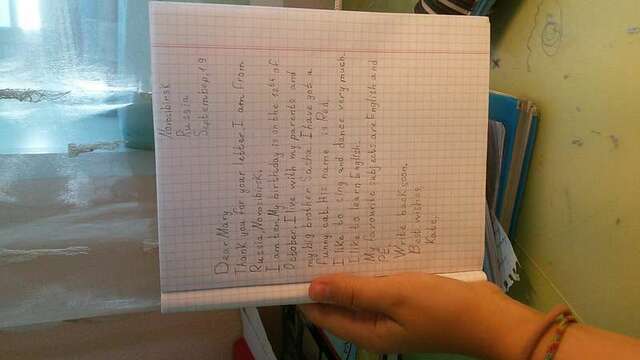 Novosibirsk
Russia
September, 19
Dear Mary
Thank you for your letter. I am from
Russia, Novosibirsk.
I am ten. My birthday is on the 12th of
October. I live with my parents and
my big brother Sacha. I have got a
funny cat. His name is Red.
I like to sing and dance very much.
I like to learn English.
My favourite subjects are English and
PE.
Write back soon.
Best wishes,
Kate.